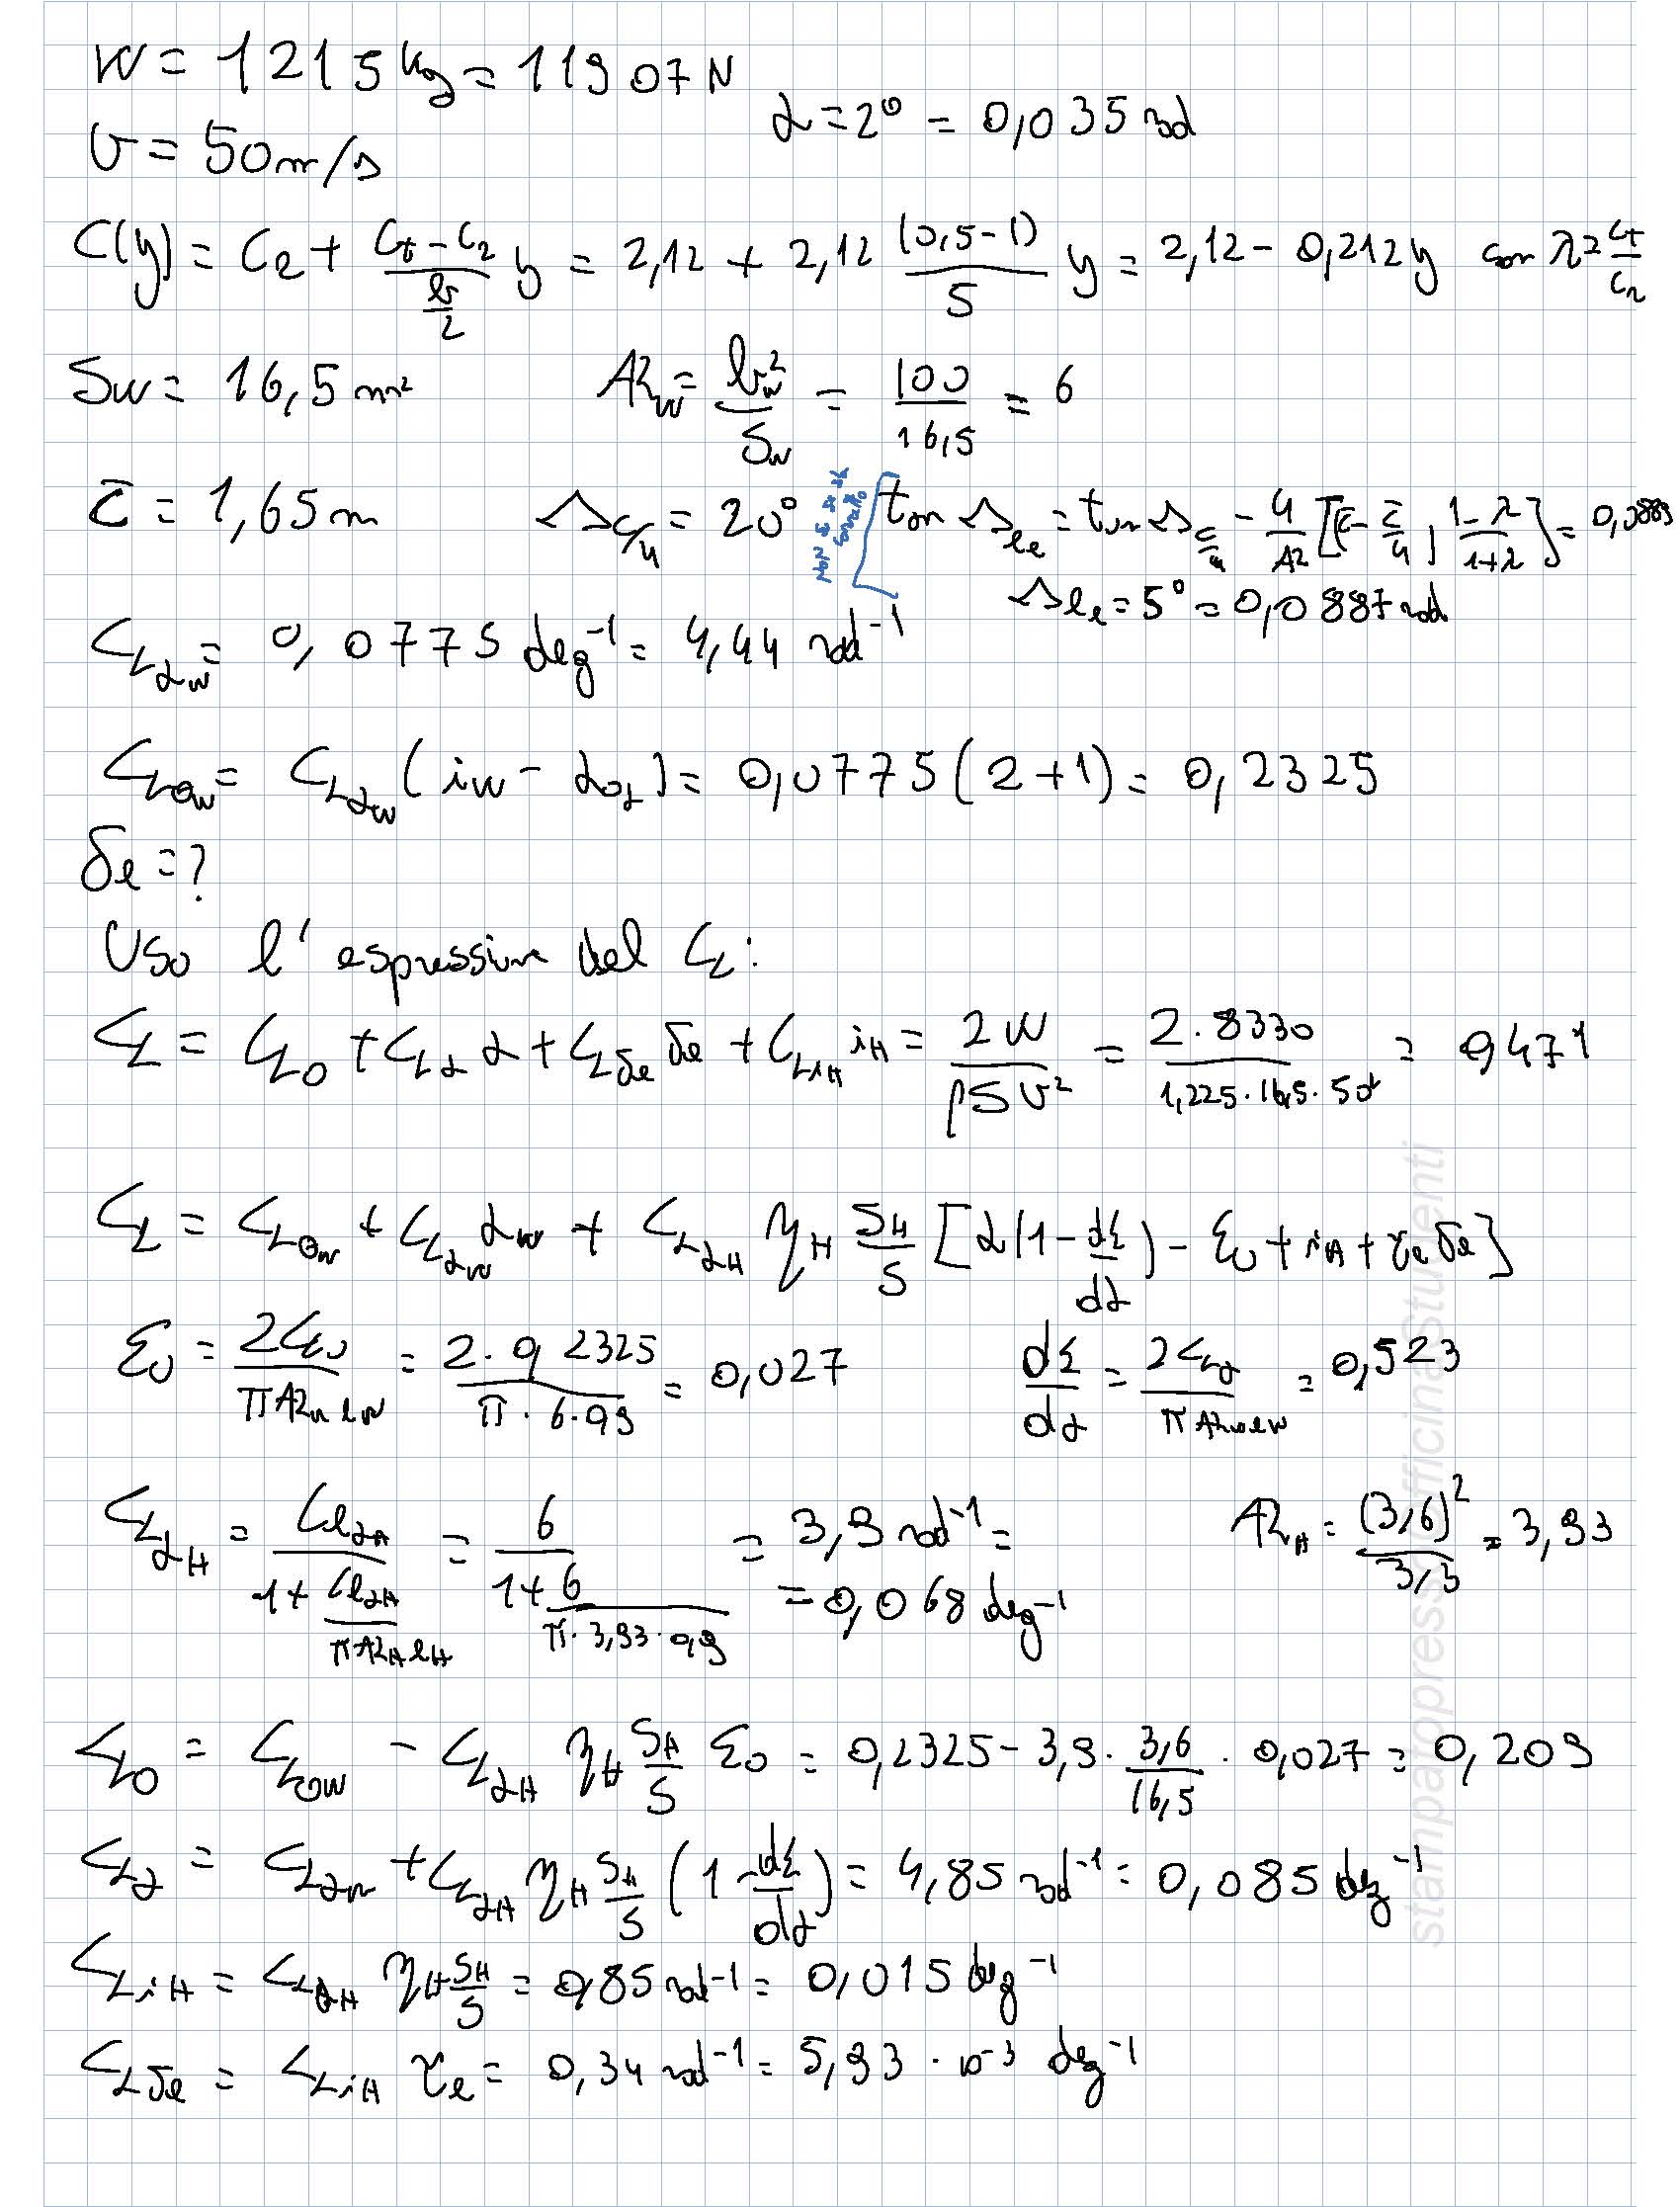 W = 1215 kg = 11907 N
α = 2° = 0,035 rad
V = 50 m/s
C(y) = Cr + (Ct - Cr)/(b/2) y = 2,12 + 2,12 (0,5-1)/5 y = 2,12 - 0,212y con λ = Ct/Cr
Sw = 16,5 m² ARw = bw²/Sw = 100/16,5 = 6
c̄ = 1,65 m Λc/4 = 20° tan Λle = tan Λc/4 - 4/AR [(c̄ - c̄/4) (1-λ)/(1+λ)] = 0,0889
Λle = 5° = 0,0887 rad
CLαw = 0,0775 deg⁻¹ = 4,44 rad⁻¹
CL0w = CLαw (iw - α0L) = 0,0775 (2+1) = 0,2325
δe = ?
Uso l'espression del CL:
CL = CL0 + CLα α + CLδe δe + CLiH iH = 2W/ρSV² = 2·8330/1,225·16,5·50² = 0,471
CL = CL0w + CLαw αw + CLαH ηH SH/S [α(1 - dε/dα) - ε0 + iH + τe δe]
ε0 = 2CL0/πARw ew = 2·0,2325/π·6·0,9 = 0,027 dε/dα = 2CLα/πARw ew = 0,523
CLαH = ClαH/(1 + ClαH/πARH eH) = 6/(1 + 6/π·3,93·0,9) = 3,9 rad⁻¹ = ARH = (3,6)²/3,3 = 3,93
= 0,068 deg⁻¹
CL0 = CL0w - CLαH ηH SH/S ε0 = 0,2325 - 3,9 · 3,6/16,5 · 0,027 = 0,209
CLα = CLαw + CLαH ηH SH/S (1 - dε/dα) = 4,85 rad⁻¹ = 0,085 deg⁻¹
CLiH = CLαH ηH SH/S = 0,85 rad⁻¹ = 0,015 deg⁻¹
CLδe = CLiH τe = 0,34 rad⁻¹ = 5,93 · 10⁻³ deg⁻¹
stampatopressoOfficinaStudenti